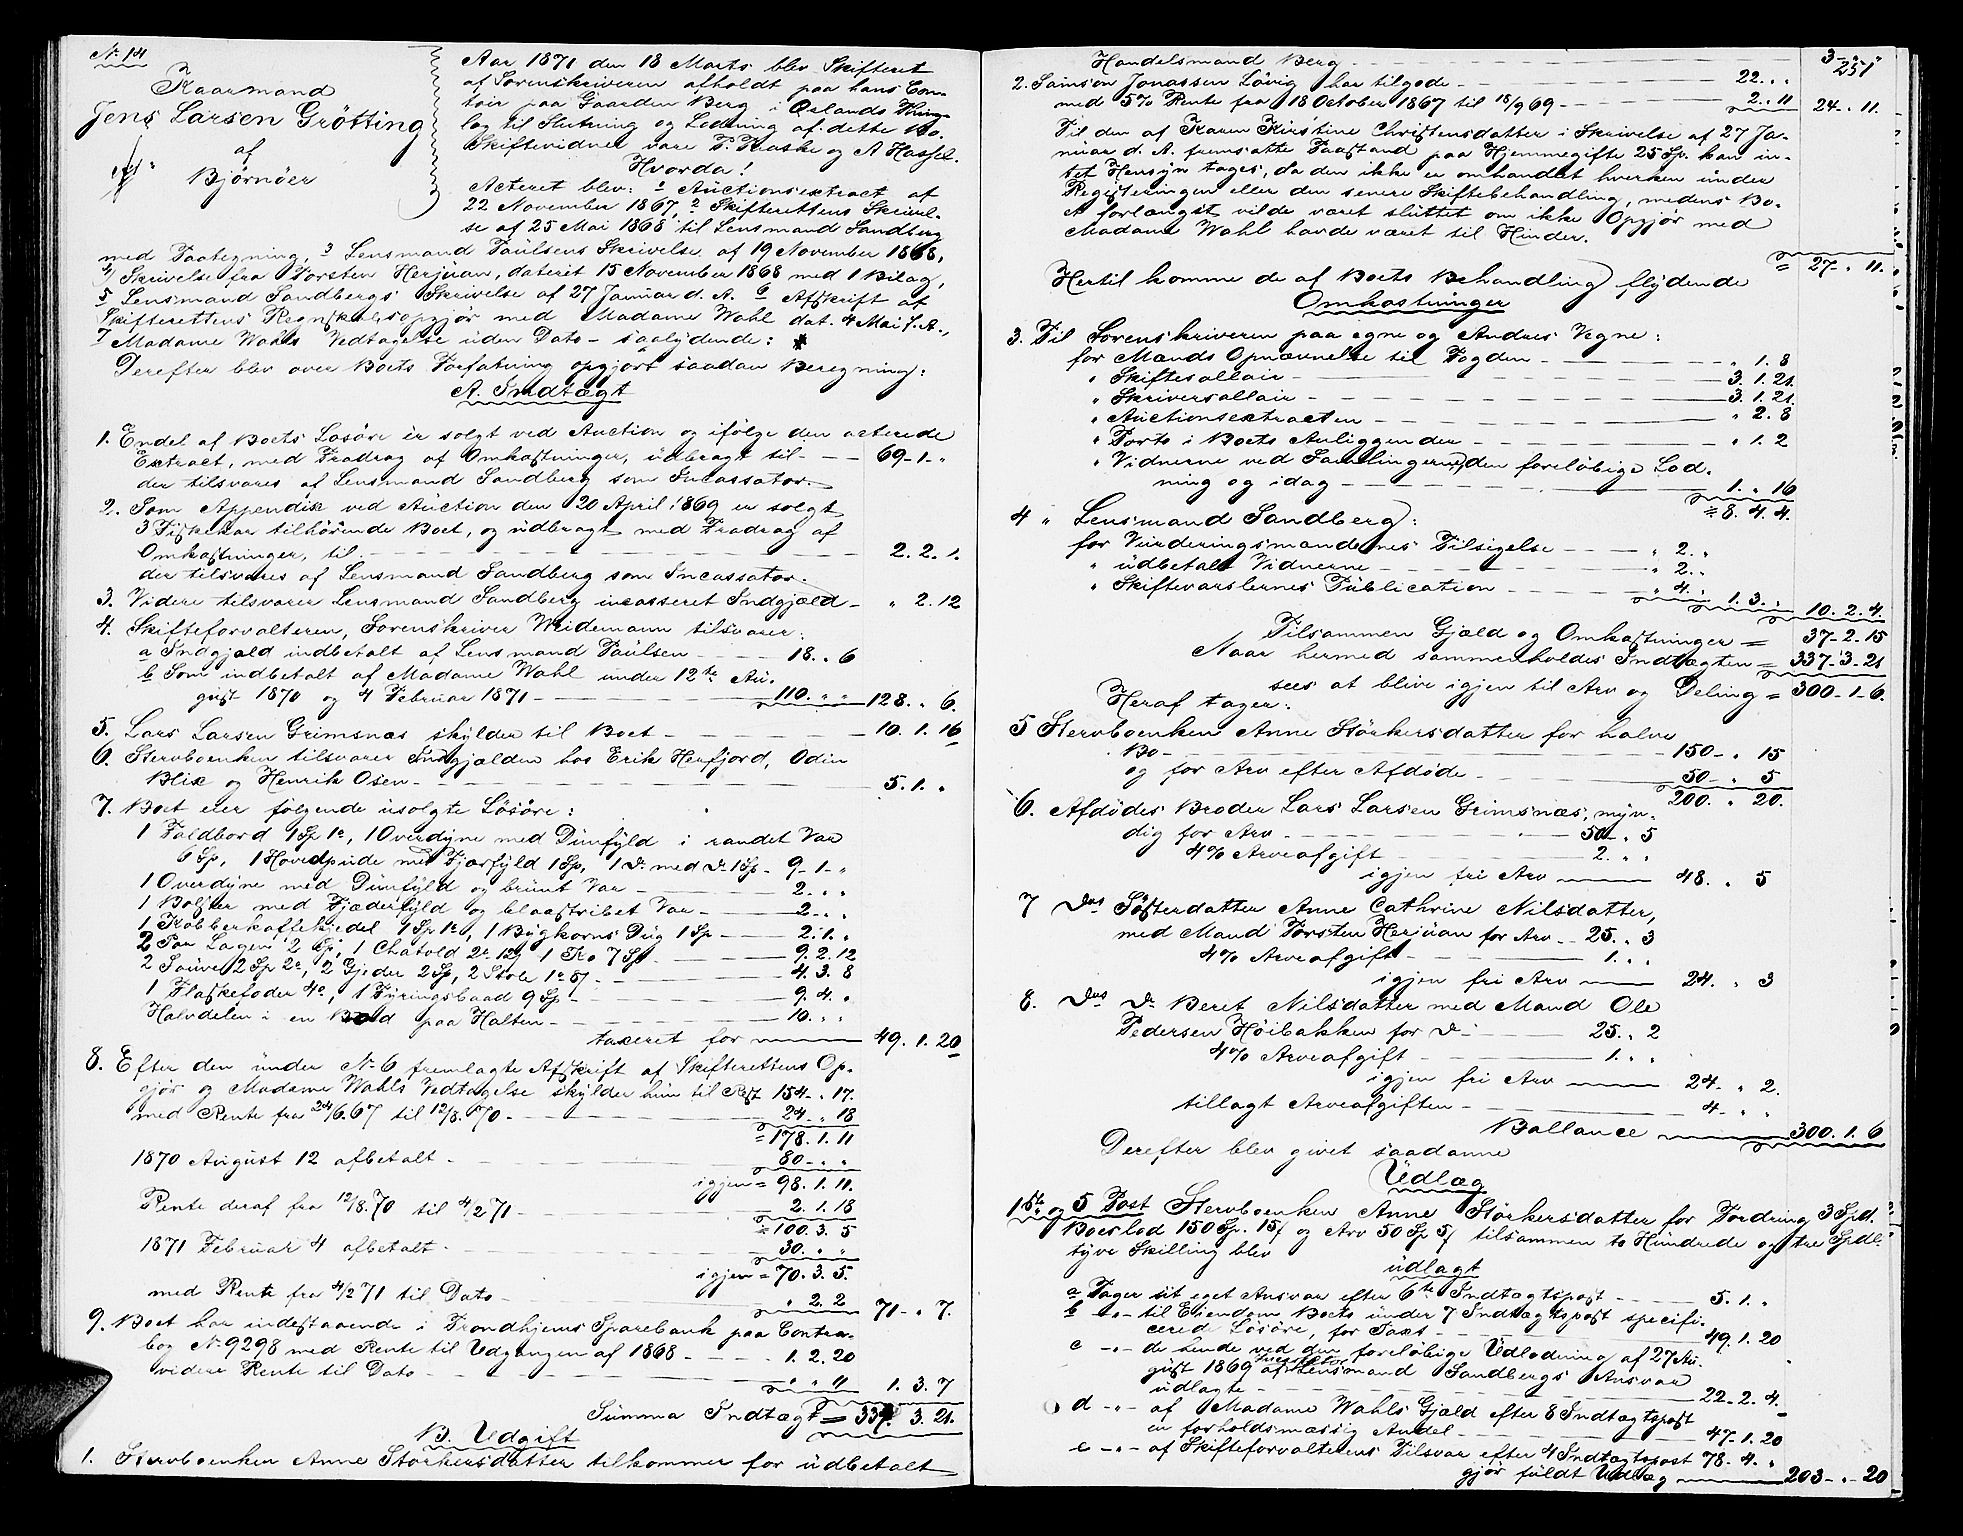 No 14
Kaarmand
Jens Larsen Grötting
af
Bjørnöer
Aar 1871 den 18 Marts blev Skifteret
af Sorenskriveren afholdt paa hans Con-
toir paa Gaarden Berg i Ørlands Thing-
lag til Slutning og Lodning af dette Bo.
Skiftevidner vare P. Kraske og A Hassel.
Hvorda!
Acteret blev: 1 Auctionsextract af
22 November 1867, 2 Skifterettens Skrivel-
se af 25 Mai 1868 til Lensmand Sandberg
med Paategning, 3 Lensmand Paulsens Skrivelse af 19 November 1868,
4/ Skrivelse fra Torsten Herjuan, dateret 15 November 1868 med 1 Bilag,
5 Lensmand Sandbergs Skrivelse af 27 Januar d. A. 6 Afskrift af
Skifterettens Regnskabsopgjör med Madame Wahl dat. 4 Mai f. A.,
7 Madame Wahls Vedtagelse uden Dato - saalydende:
Derefter blev over Boets Forfatning opgjort saadan Beregning:
A. Indtægt
1. Endel af Boets Lösöre er solgt ved Auction og ifölge den acterede
Extract, med Fradrag af Omkostninger, udbragt til - 69-1-"
der tilsvares af Lensmand Sandberg som Incassator.
2. Som Appendix ved Auction den 20 April 1869 er solgt
3 Fiskekar tilhörende Boet, og udbragt med Fradrag af
Omkostninger, til - 2. 2. 1.
der tilsvares af Lensmand Sandberg som Incassator.
3. Videre tilsvarer Lensmand Sandberg incasseret Indgjæld - " 2. 12
4. Skifteforvalteren, Sorenskriver Weidemann tilsvarer:
a Indgjæld indbetalt af Lensmand Paulsen - 18. " 6
b Som indbetalt af Madame Wahl under 12te Au-
gust 1870 og 4 Februar 1871 - 110. " " 128. " 6.
5. Lars Larsen Grimsnæs skylder til Boet - 10. 1. 16
6. Stervboenken tilsvarer Indgjælden hos Erik Herfjord, Odin
Blix og Henrik Osen - 5. 1. "
7. Boet eier fölgende usolgte Lösöre:
1 Foldbord 1 Sp 1o, 1 Overdyne med Dunfyld i randet Var
6 Sp, 1 Hovedpude med Fjærfyld 1 Sp, 1 do med do 1 Sp - 9-1-"
1 Overdyne med Dunfyld og brunt Var - 2. " "
1 Bolster med Fjæderfyld og blaastribet Var - 2-. "
1 Kobberkaffekjedel 1 Sp 1o, 1 Bygkorns Dug 1 Sp - 2. 1. "
2 Par Lagen 2 Sp, 1 Chatold 2o 12 1 Ko 7 Sp - 9. 2. 12
2 Sauer 2 Sp 2o, 2 Gjeder 2 Sp, 2 Stole 1o 8/ - 4. 3. 8
1 Flaskefoder 4o, 1 Fyringsbaad 9 Sp - 9. 4. "
Halvdelen i en Bod paa Halten - 10. " "
taxeret for 49. 1. 20
8. Efter den under No 6 fremlagte Afskrift af Skifterettens Op-
gjör og Madame Wahls Vedtagelse skylder hun til Rest 154-. 17.
med Rente fra 24/6.67 til 12/8.70 - 24- " 18
= 178. 1. 11
1870 August 12 afbetalt - 80-. "
igjen = 98. 1. 11.
Rente deraf fra 12/8.70 til 4/2 71 - 2. 1. 18
= 100. 3. 5
1871 Februar 4 afbetalt - 30. " "
igjen = 70. 3. 5.
med Rente fra 4/2 71 til Dato - " 2. 2 71-" 7.
9. Boet har indestaaende i Trondhjems Sparebank paa Contra-
bog No 9298 med Rente til Udgangen af 1868 - 1. 2. 20
videre Rente til Dato - " " 11 1. 3. 7
Summa Indtægt = 337. 3. 21.
B. Udgift
1. Stervboenken Anne Störkersdatter tilkommer for udbetalt
251
Handelsmand Berg - 3-
2. Samson Jonassen Lövig har tilgode - 22. " "
med 5% Rente fra 18 October 1867 til 18/9 69 - 2. " 11 24. " 11.
Til den af Karen Kirstine Christensdatter i Skrivelse af 27 Ja-
nuar d. A. fremsatte Paastand paa Hjemmegifte 25 Sp. kan in-
tet Hensyn tages, da den ikke er omhandlet hverken under
Registeringen eller den senere Skiftebehandling, medens Bo-
et forlængst vilde været sluttet om ikke Opgjör med
Madame Wahl havde været til Hinder.
= 27. " 11.
Hertil komme de af Boets Behandling flydende
Omkostninger
3. Til Sorenskriveren paa egne og Andres Vegne:
for Mænds Opnævnelse til Fogden - " 1. 8
" Skiftesallair - 3. 1. 21.
" Skriversallair - 3. 1. 21
" Auctionsextracten - " 2. 8
" Porto i Boets Anliggender - " 1. 2
" Vidnerne ved Samlingerne, den foreløbige Lod-
ning og idag - 1. " 16
= 8. 4. 4.
4 " Lensmand Sandberg:
for Vurderingsmændenes Tilsigelse - " 2. "
" udbetalt Vidnerne - " 2. "
" Skiftevarslernes Publication - " 4. " 1. 3. " 10. 2. 4.
Tilsammen Gjæld og Omkostninger = 37-2. 15
Naar hermed sammenholdes Indtægten = 337-3-21
sees at blive igjen til Arv og Deling = 300-1-6.
Heraf tager:
5 Stervboenken Anne Störkersdatter for halve
Bo - 150-" 15
og for Arv efter Afdöde - 50-" 5
200. " 20.
6. Afdödes Broder Lars Larsen Grimsnæs, myn-
dig for Arv - 50-. 5
4% Arveafgift - 2. " "
igjen fri Arv 48. " 5
7 Dös Sösterdatter Anne Cathrine Nilsdatter,
med Mand Torsten Herjuan for Arv - 25. " 3
4% Arveafgift - 1. " "
igjen fri Arv 24. " 3
8. Dös do Beret Nilsdatter med Mand Ole
Pedersen Höibakken for do - 25. " 2
4% Arveafgift - 1. " "
igjen fri Arv 24. " 2.
tillagt Arveafgiften - 4-. "
Ballance 300. 1. 6
Derefter blev givet saadanne
Udlæg
1ste og 5 Post Stervboenken Anne Störkersdatter for Fordring 3 Spd.
Boeslod 150 Sp. 15/ og Arv 50 Sp 5/ tilsammen to Hundrede og tre Spdl.
tyve Skilling blev
udlagt
a Tager sit eget Ansvar efter 6te Indtægtspost - 5. 1. "
b -"- til Eiendom Boets under 7 Indtægtspost specifi-
cered Lösöre, for Taxt - 49. 1. 20
c -"- de hende ved den foreløbige Udlodning af 27 Au-
gust 1869 af Incassator Lensmand Sandbergs Ansvar
udlagte - 22-2. 4.
d -"- af Madame Wahls Gjæld efter 8 Indtægtspost
en forholdsmæssig Andel - 47-1. 20
e -"- af Skifteforvalterens Tilsvar efter 4 Indtægtspost 78-4. "
gjör fuldt Udlæg 203-"-20